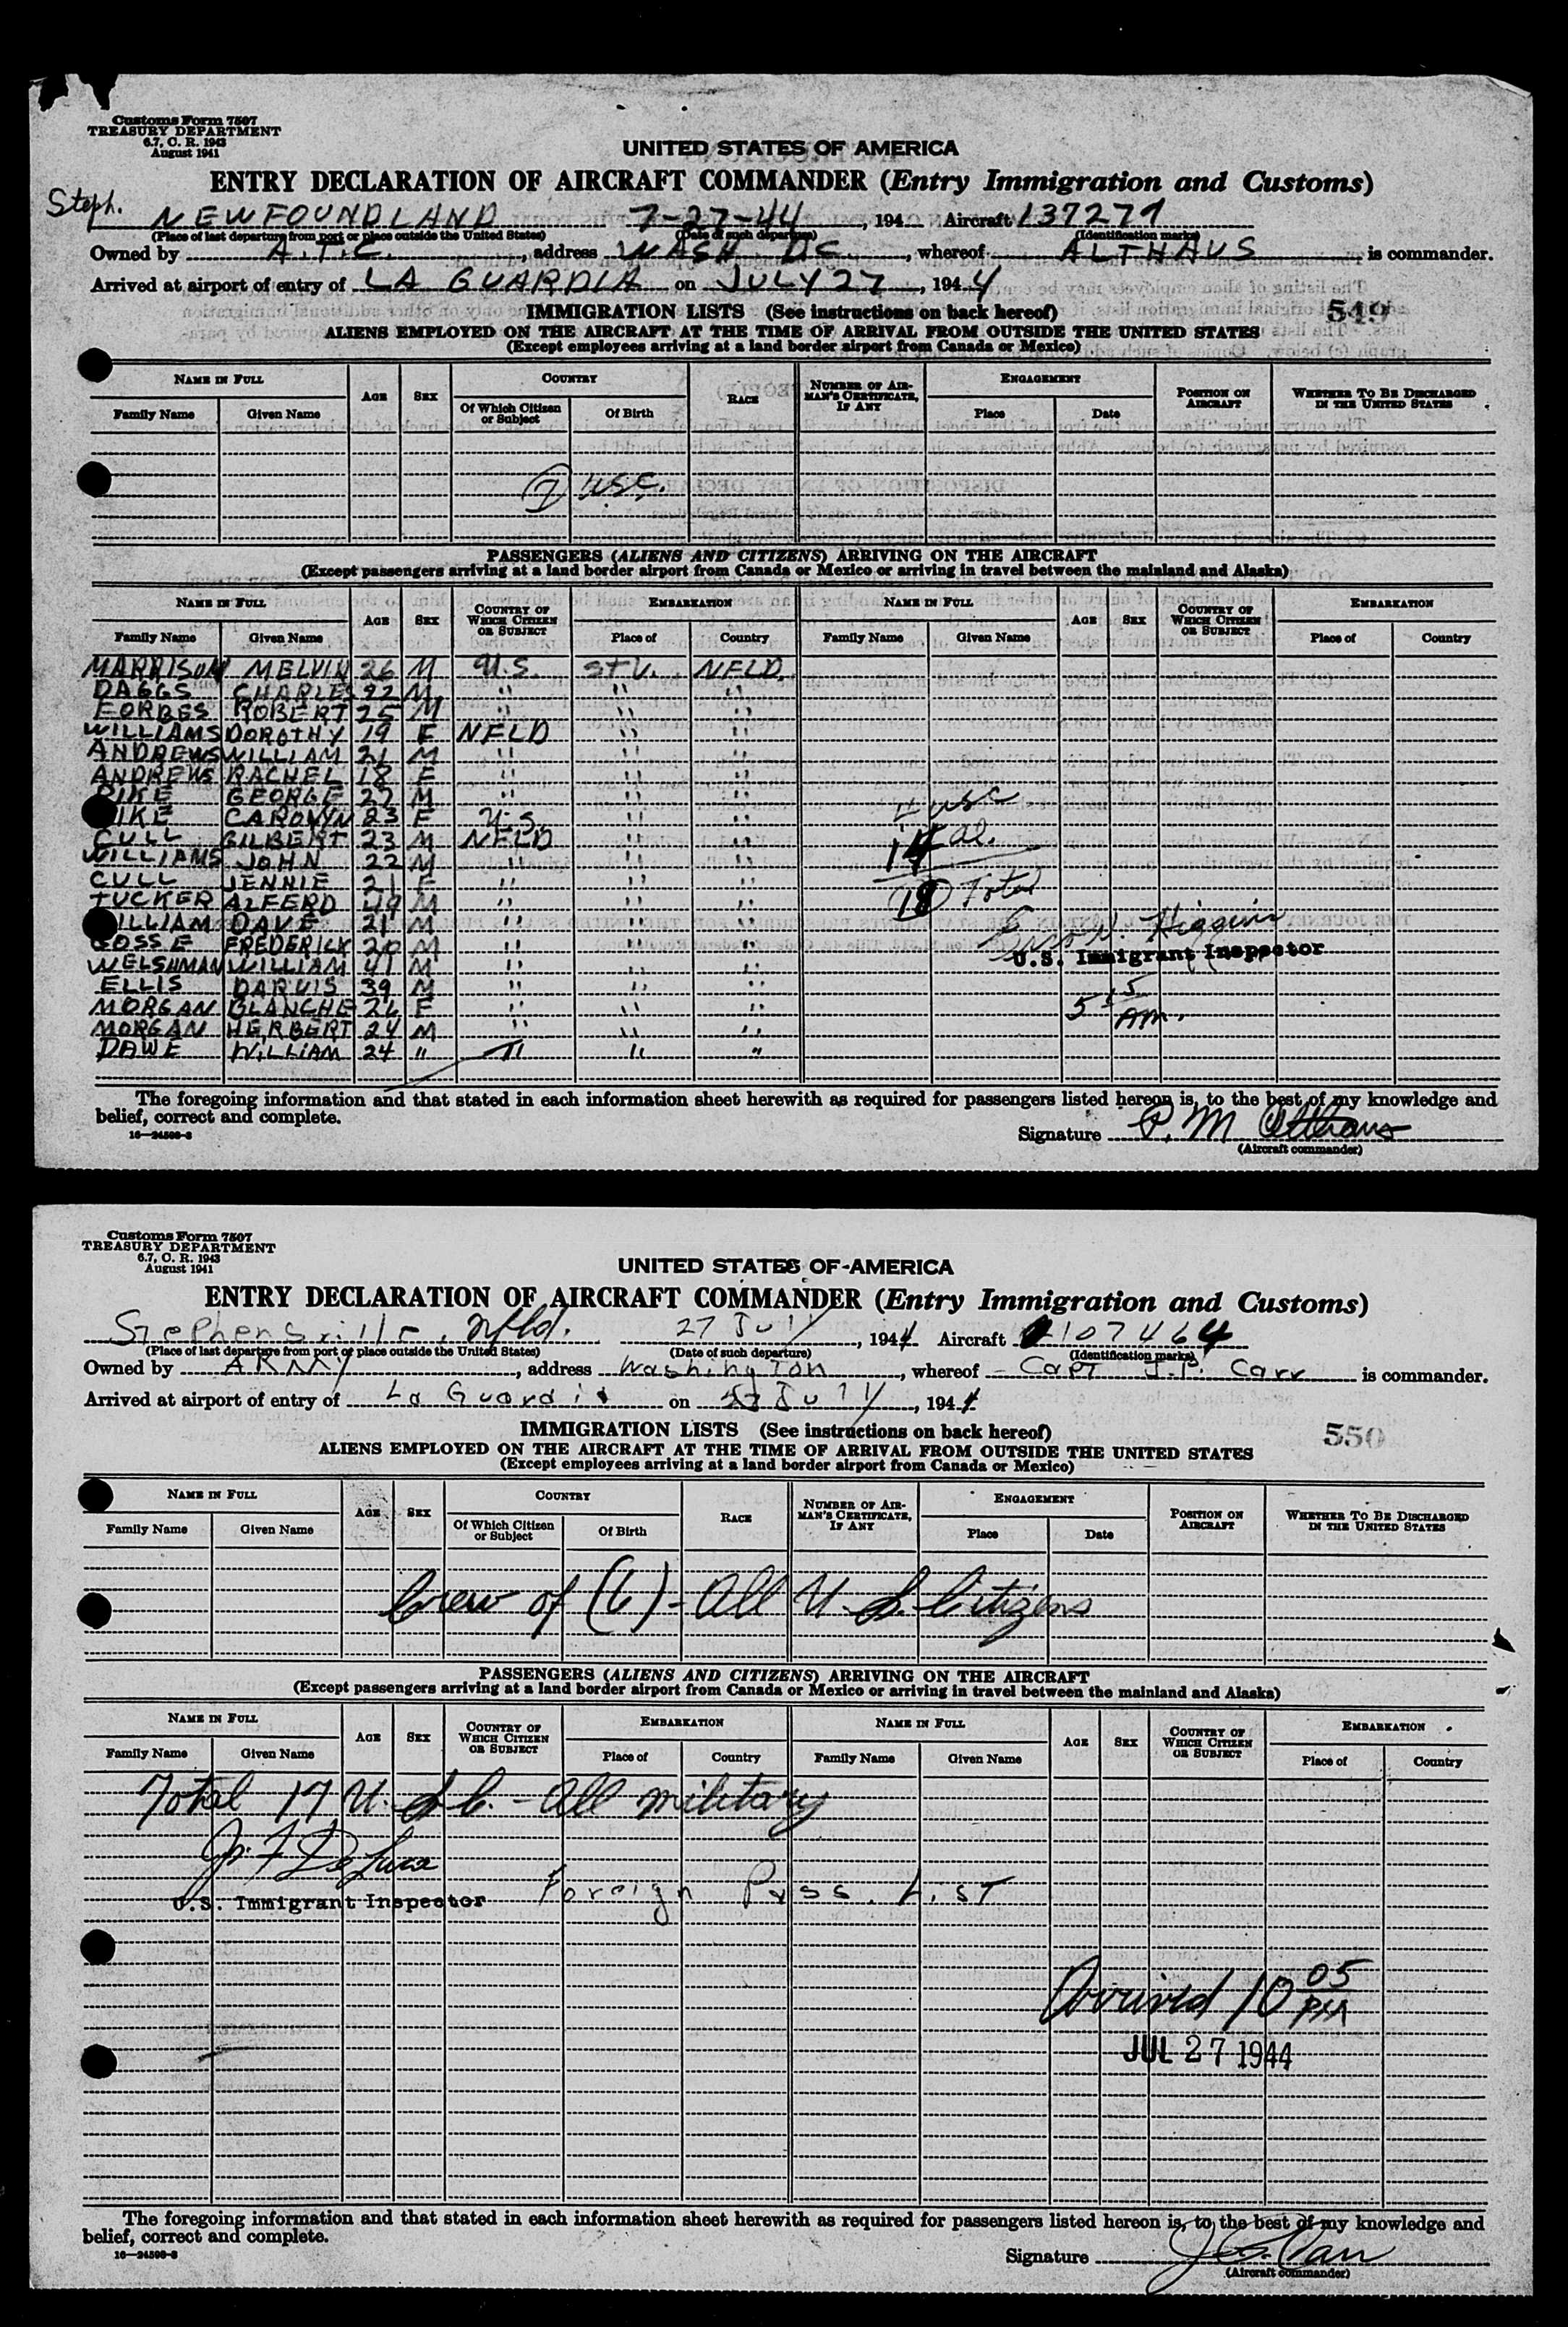 Customs Form 7507
TREASURY DEPARTMENT
6.7, C. R. 1943
August 1941
UNITED STATES OF AMERICA
ENTRY DECLARATION OF AIRCRAFT COMMANDER (Entry Immigration and Customs)
Steph. NEWFOUNDLAND 7-27-44, 194 Aircraft 137277
(Place of last departure from port or place outside the United States) (Date of such departure) (Identification marks)
Owned by A.T.C., address WASH DC, whereof ALTHAUS is commander.
Arrived at airport of entry of LA GUARDIA on JULY 27, 1944
IMMIGRATION LISTS (See instructions on back hereof) 549
ALIENS EMPLOYED ON THE AIRCRAFT AT THE TIME OF ARRIVAL FROM OUTSIDE THE UNITED STATES
(Except employees arriving at a land border airport from Canada or Mexico)
NAME IN FULL AGE SEX COUNTRY RACE NUMBER OF AIRMAN'S CERTIFICATE, IF ANY ENGAGEMENT POSITION ON AIRCRAFT WHETHER TO BE DISCHARGED IN THE UNITED STATES
Family Name Given Name Of Which Citizen or Subject Of Birth Place Date
(7) USC.
PASSENGERS (ALIENS AND CITIZENS) ARRIVING ON THE AIRCRAFT
(Except passengers arriving at a land border airport from Canada or Mexico or arriving in travel between the mainland and Alaska)
NAME IN FULL AGE SEX COUNTRY OF WHICH CITIZEN OR SUBJECT EMBARKATION NAME IN FULL AGE SEX COUNTRY OF WHICH CITIZEN OR SUBJECT EMBARKATION
Family Name Given Name Place of Country Family Name Given Name Place of Country
MARRISON MELVIN 26 M U.S. STV. NFLD.
DAGGS CHARLES 22 M " " "
FORBES ROBERT 25 M " " "
WILLIAMS DOROTHY 19 F NFLD " "
ANDREWS WILLIAM 21 M " " "
ANDREWS RACHEL 18 F " " "
PIKE GEORGE 27 M " " "
IKE CAROLYN 23 F U.S. " "
CULL GILBERT 23 M NFLD " "
WILLIAMS JOHN 22 M " " "
CULL JENNIE 21 F " " "
TUCKER ALFERD 49 M " " "
ILLIAM DAVE 21 M " " "
GOSSE FREDERICK 20 M " " "
WELSHMAN WILLIAM 41 M " " "
ELLIS DARVIS 39 M " " "
MORGAN BLANCHE 26 F " " "
MORGAN HERBERT 24 M " " "
DAWE WILLIAM 24 " " " "
4 USC
14 al.
18 Total
Higgins
U.S. Immigrant Inspector
5 15 AM.
The foregoing information and that stated in each information sheet herewith as required for passengers listed hereon is, to the best of my knowledge and
belief, correct and complete.
16—24598-2
Signature P. M. Althaus
(Aircraft commander)
Customs Form 7507
TREASURY DEPARTMENT
6.7, C. R. 1943
August 1941
UNITED STATES OF AMERICA
ENTRY DECLARATION OF AIRCRAFT COMMANDER (Entry Immigration and Customs)
Stephenville, Nfld. 27 July, 1944 Aircraft 107464
(Place of last departure from port or place outside the United States) (Date of such departure) (Identification marks)
Owned by ARMY, address Washington, whereof Capt J.P. Carr is commander.
Arrived at airport of entry of La Guardia on 27 July, 1944
IMMIGRATION LISTS (See instructions on back hereof) 550
ALIENS EMPLOYED ON THE AIRCRAFT AT THE TIME OF ARRIVAL FROM OUTSIDE THE UNITED STATES
(Except employees arriving at a land border airport from Canada or Mexico)
NAME IN FULL AGE SEX COUNTRY RACE NUMBER OF AIRMAN'S CERTIFICATE, IF ANY ENGAGEMENT POSITION ON AIRCRAFT WHETHER TO BE DISCHARGED IN THE UNITED STATES
Family Name Given Name Of Which Citizen or Subject Of Birth Place Date
Crew of (6) - All U.S. Citizens
PASSENGERS (ALIENS AND CITIZENS) ARRIVING ON THE AIRCRAFT
(Except passengers arriving at a land border airport from Canada or Mexico or arriving in travel between the mainland and Alaska)
NAME IN FULL AGE SEX COUNTRY OF WHICH CITIZEN OR SUBJECT EMBARKATION NAME IN FULL AGE SEX COUNTRY OF WHICH CITIZEN OR SUBJECT EMBARKATION
Family Name Given Name Place of Country Family Name Given Name Place of Country
Total 17 U.S.C. - All military
Jos. F. DeLuca
U.S. Immigrant Inspector Foreign Pass. List
Arrived 10 05 PM
JUL 27 1944
The foregoing information and that stated in each information sheet herewith as required for passengers listed hereon is, to the best of my knowledge and
belief, correct and complete.
16—24598-2
Signature J.P. Carr
(Aircraft commander)